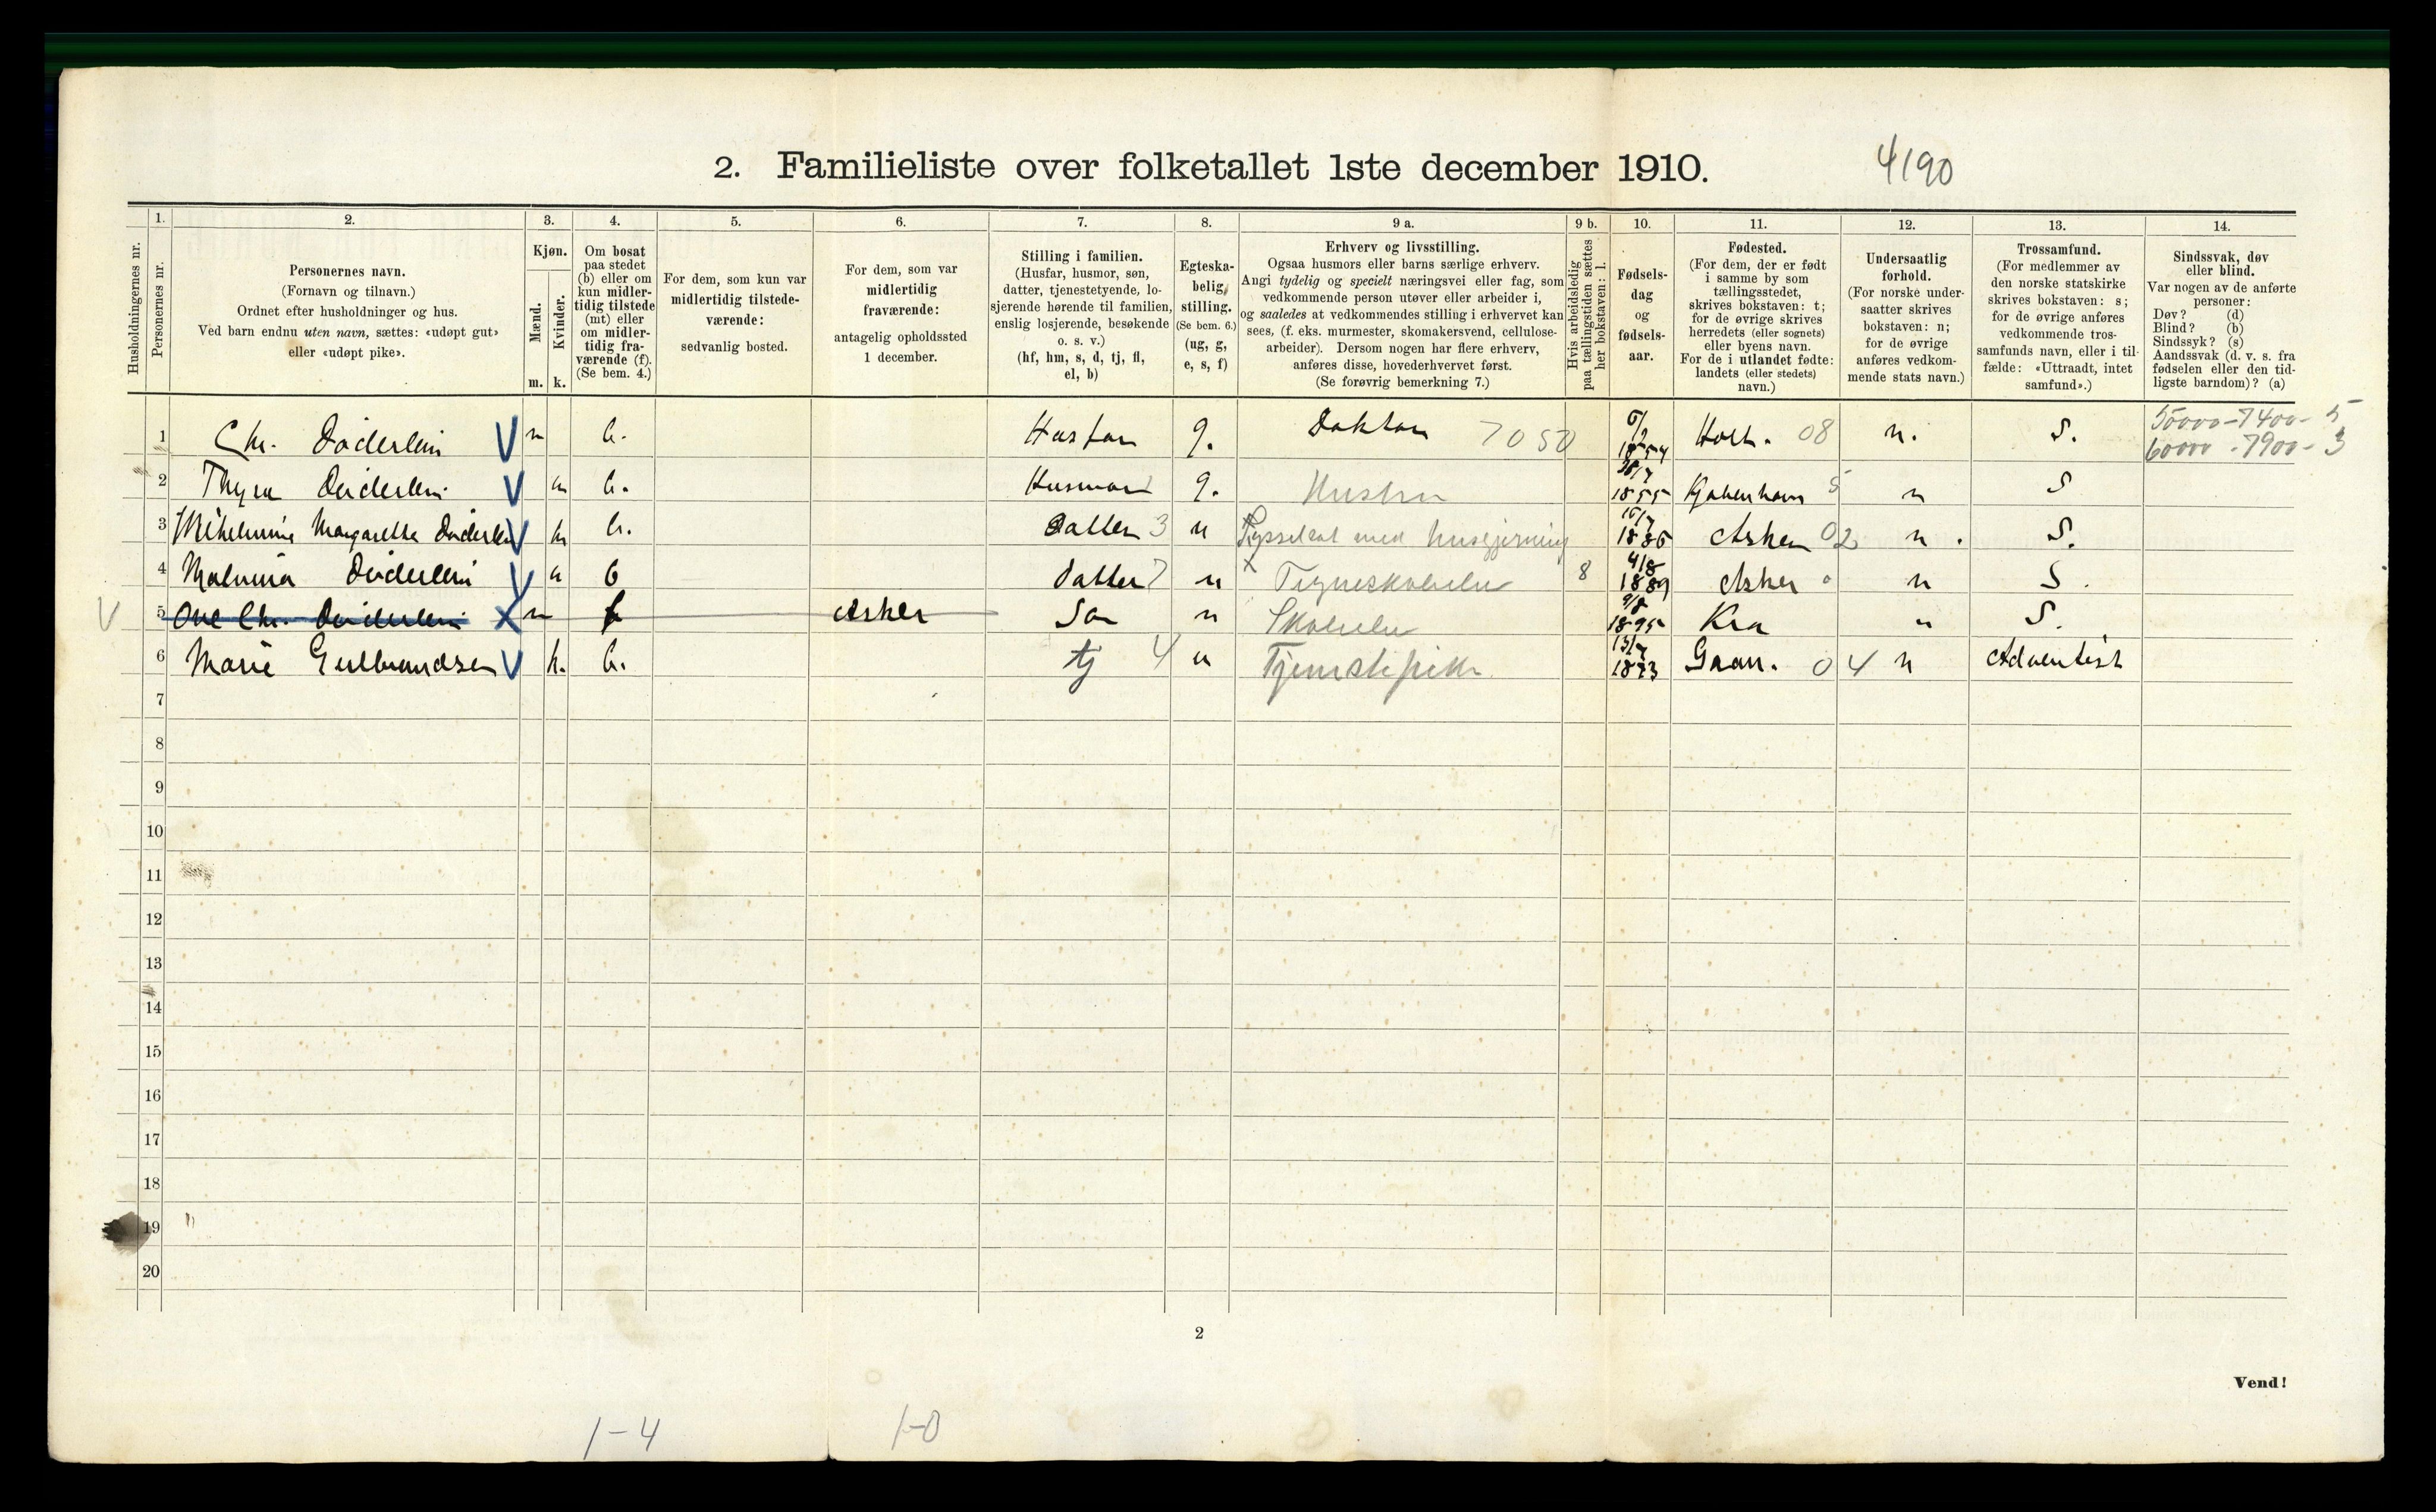 2. Familieliste over folketallet 1ste december 1910. 4190
1. 2. 3. 4. 5. 6. 7. 8. 9 a. 9 b. 10. 11. 12. 13. 14.
Husholdningernes nr.
Personernes nr.
Personernes navn.
(Fornavn og tilnavn.)
Ordnet efter husholdninger og hus.
Ved barn endnu uten navn, sættes: «udøpt gut»
eller «udøpt pike».
Kjøn.
Mænd.
Kvinder.
m. k.
Om bosat
paa stedet
(b) eller om
kun midler-
tidig tilstede
(mt) eller
om midler-
tidig fra-
værende (f).
(Se bem. 4.)
For dem, som kun var
midlertidig tilstede-
værende:
sedvanlig bosted.
For dem, som var
midlertidig
fraværende:
antagelig opholdssted
1 december.
Stilling i familien.
(Husfar, husmor, søn,
datter, tjenestetyende, lo-
sjerende hørende til familien,
enslig losjerende, besøkende
o. s. v.)
(hf, hm, s, d, tj, fl,
el, b)
Egteska-
belig
stilling.
(Se bem. 6.)
(ug, g,
e, s, f)
Erhverv og livsstilling.
Ogsaa husmors eller barns særlige erhverv.
Angi tydelig og specielt næringsvei eller fag, som
vedkommende person utøver eller arbeider i,
og saaledes at vedkommendes stilling i erhvervet kan
sees, (f. eks. murmester, skomakersvend, cellulose-
arbeider). Dersom nogen har flere erhverv,
anføres disse, hovederhvervet først.
(Se forøvrig bemerkning 7.)
Hvis arbeidsledig
paa tællingstiden sættes
her bokstaven: l.
Fødsels-
dag
og
fødsels-
aar.
Fødested.
(For dem, der er født
i samme by som
tællingsstedet,
skrives bokstaven: t;
for de øvrige skrives
herredets (eller sognets)
eller byens navn.
For de i utlandet fødte:
landets (eller stedets)
navn.)
Undersaatlig
forhold.
(For norske under-
saatter skrives
bokstaven: n;
for de øvrige
anføres vedkom-
mende stats navn.)
Trossamfund.
(For medlemmer av
den norske statskirke
skrives bokstaven: s;
for de øvrige anføres
vedkommende tros-
samfunds navn, eller i til-
fælde: «Uttraadt, intet
samfund».)
Sindssvak, døv
eller blind.
Var nogen av de anførte
personer:
Døv? (d)
Blind? (b)
Sindssyk? (s)
Aandssvak (d. v. s. fra
fødselen eller den tid-
ligste barndom)? (a)
50000-7400-5
1 Chr. Döderlein V m b. Husfar g. Doktor 7050 1854 Holt. 08 n. S. 60000-7900-3
2 Thyra Döderlein V k b. Husmor g. Hustru 1855 Kjøbenhavn 5 n S
3 Wilhelmine Margarethe Döderlein V k b. Datter 3 u Sysselsat med husgjerning 1886 Asker 02 n . S.
4 Malvina Döderlein V k b Datter 7 u x Tegneskoleelev 8 4/8 1889 Asker n S.
V 5 Ove Chr. Döderlein X m f Asker Søn u Skoleelev 9/8 1895 Kra n S.
6 Marie Gulbrandsen V k. b. tj 4 u Tjenestepike 1873 Gran. 04 n Adventist
7
8
9
10
11
12
13
14
15
16
17
18
19
20
2
Vend!
1-4 1-0